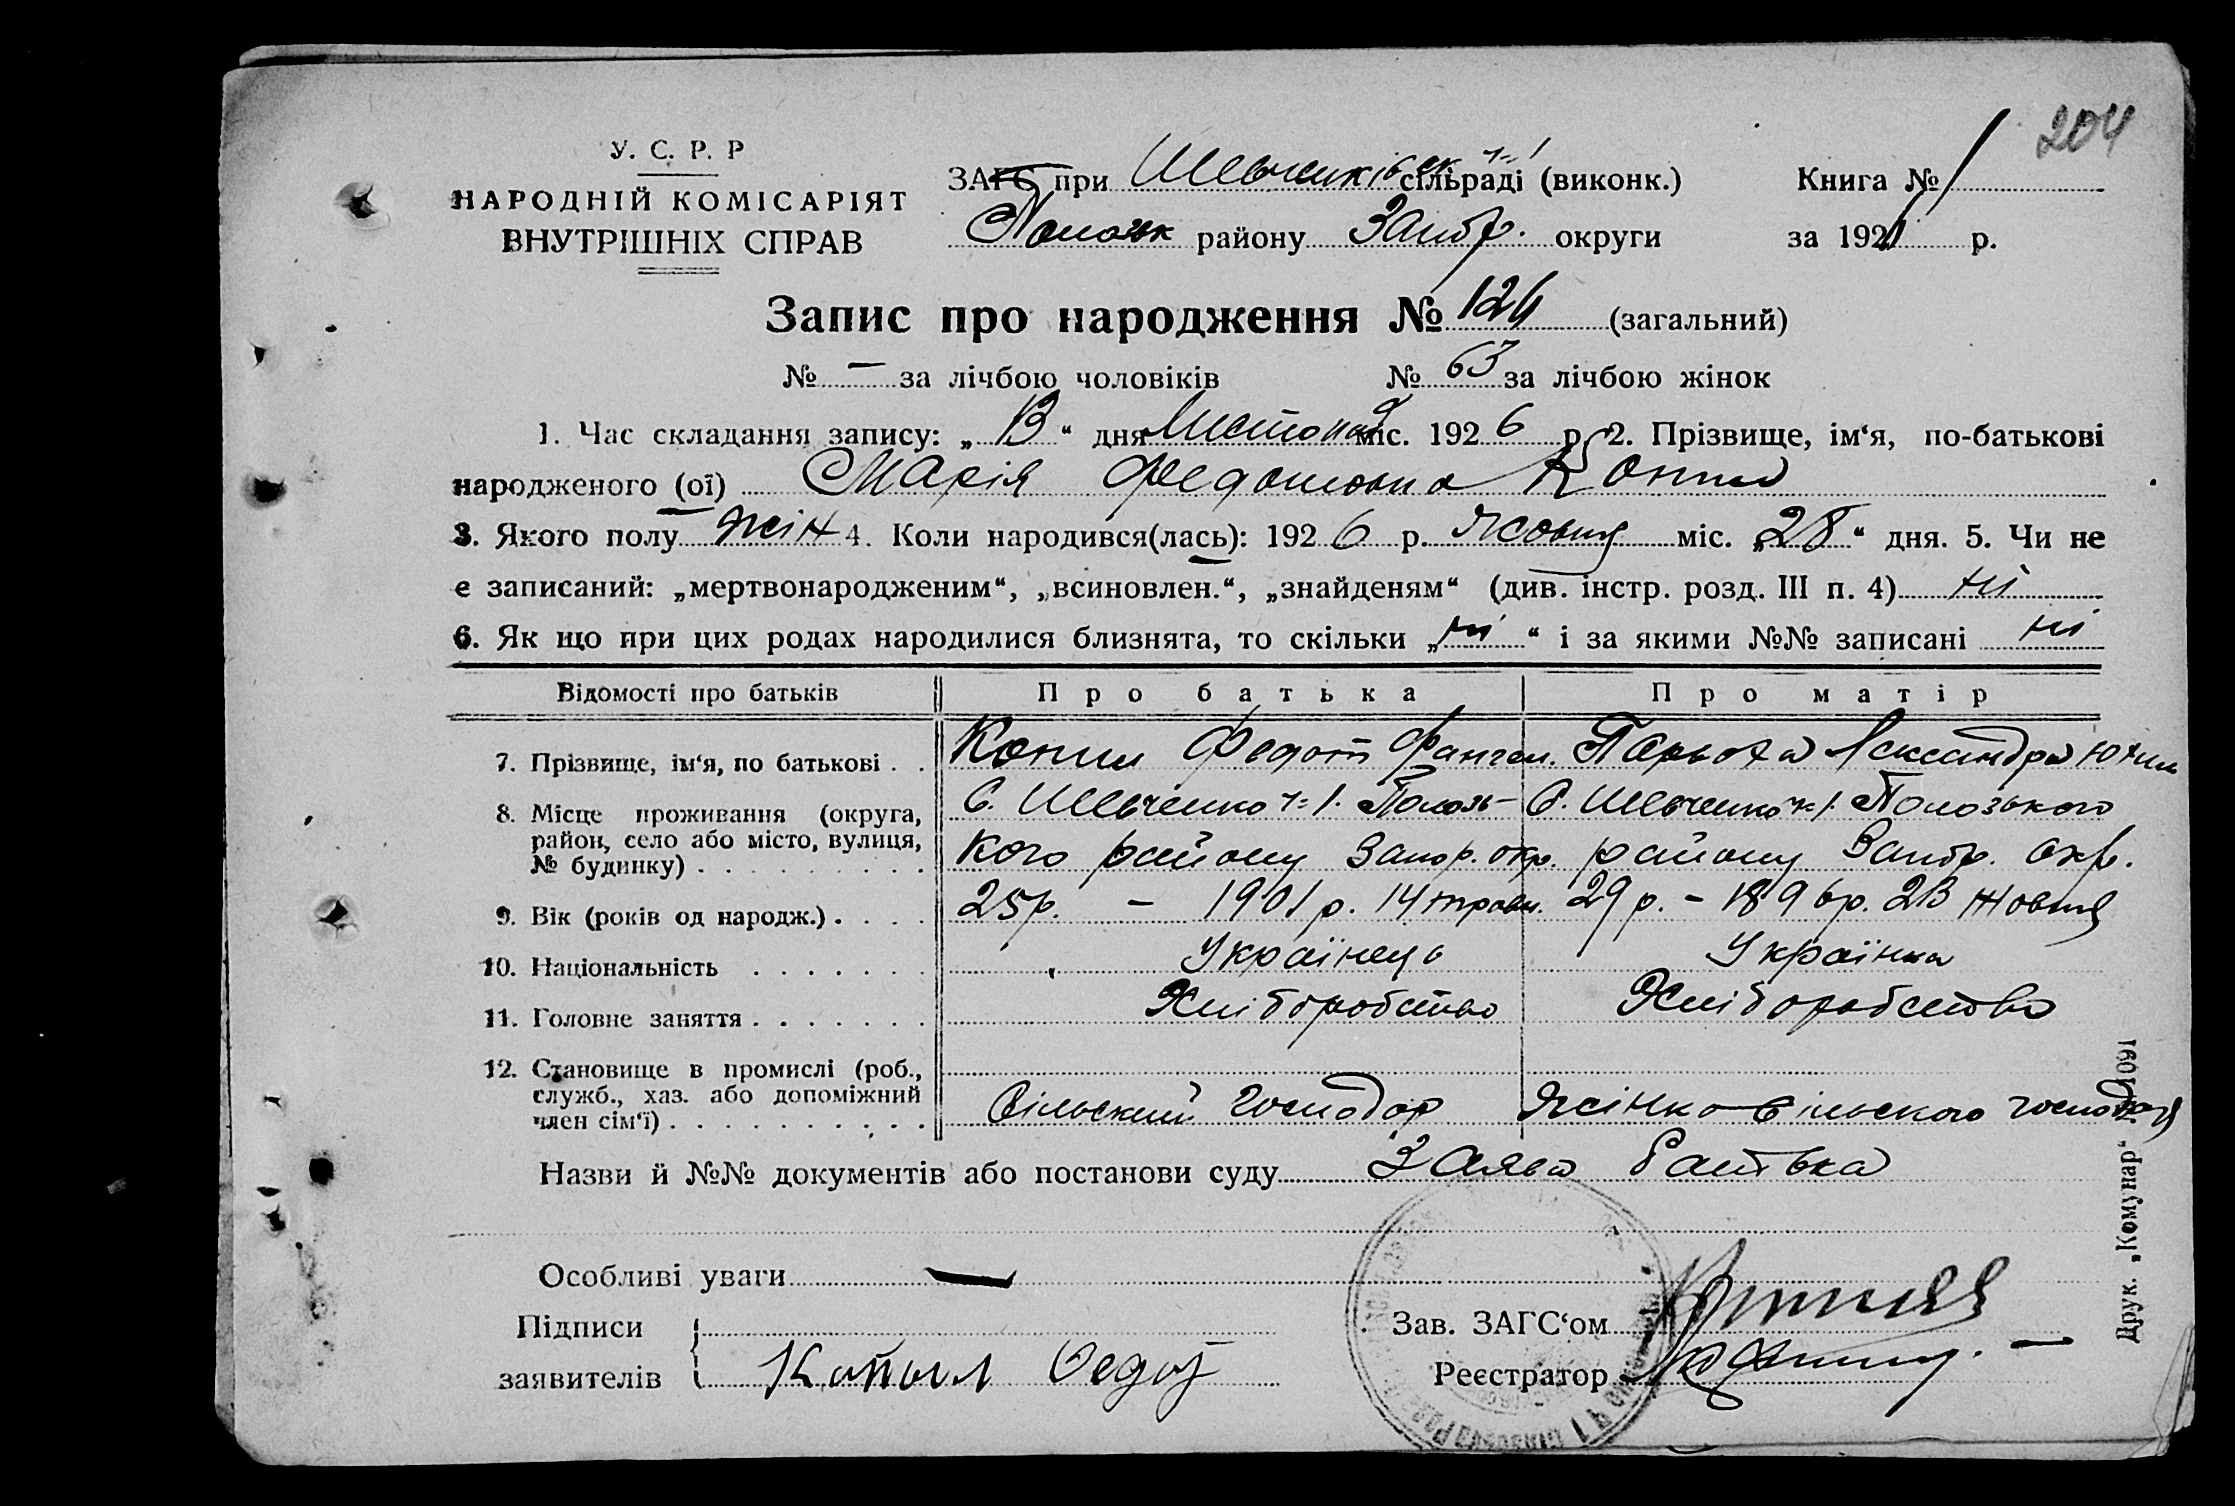 204
У. С. Р. Р
НАРОДНІЙ КОМІСАРІЯТ
ВНУТРІШНІХ СПРАВ
ЗАГС при Шевченківськ ч 1 сільраді (виконк.)
Полозьк району Запор. округи
Книга № 1
за 192 р.
Запис про народження № 124 (загальний)
№ — за лічбою чоловіків № 63 за лічбою жінок
1. Час складання запису: „ 13 “ дня Листопад міс. 192 6 р. 2. Прізвище, ім‘я, по-батькові
народженого (ої) Марія Федотовна Копил
3. Якого полу жін 4. Коли народився(лась): 192 6 р. Жовтня міс. „ 28 “ дня. 5. Чи не
є записаний: „мертвонародженим“, „всиновлен.“, „знайденям“ (див. інстр. розд. III п. 4) ні
6. Як що при цих родах народилися близнята, то скільки „ ні “ і за якими №№ записані ні
Відомості про батьків Про батька Про матір
7. Прізвище, ім‘я, по батькові . . Копил Федот Парьоха
8. Місце проживання (округа, район, село або місто, вулиця, № будинку) . . . . . . . . .
С. Шевченко ч: 1. Полозь-
кого району Запор. окр.
С. Шевченко ч 1. Полозького
району Запор. окр.
9. Вік (років од народж.) . . . . 25 р. — 1901 р. 14 травн. 29 р. — 1896 р. 23 Жовтня
10. Національність . . . . . . . Українець Українка
11. Головне заняття . . . . . . . Хліборобство Хліборобство
12. Становище в промислі (роб., служб., хаз. або допоміжний член сім‘ї) . . . . . . . . . .
Сільский господар Жінка сільского господаря
Назви й №№ документів або постанови суду Заява батька
Особливі уваги —
Підписи
заявителів Копыл Федот
Зав. ЗАГС‘ом
Реєстратор
Друк. „Комунар“ 1091